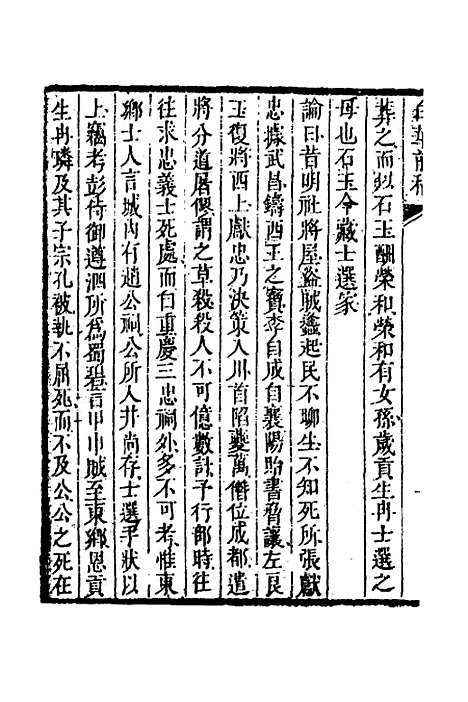 葬之而以石玉酬榮和榮和有女孫歲貢生冉士選之
母也石玉今藏士選家
論曰昔明社將屋盜賊蠭起民不聊生不知死所張獻
忠據武昌鑄西王之寶李自成自襄陽貽書脅讓左良
玉復將西上獻忠乃決策入川首陷夔萬僭位成都遣
將分道屠僇謂之草殺殺人不可億數計予行部時往
往求忠義士死處而自重慶三忠祠外多不可考惟東
鄉士人言城內有趙公祠公所入井尚存士選手狀以
上竊考彭侍御遵泗所爲蜀碧言甲申賊至東鄉恩貢
生冉璘及其子宗孔被執不屈死而不及公公之死在